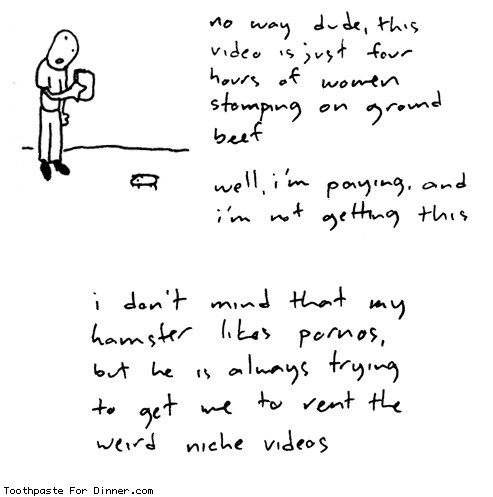 no way dude, this
video is just four
hours of women
stomping on ground
beef
well, i'm paying, and
i'm not getting this
i don't mind that my
hamster likes pornos,
but he is always trying
to get me to rent the
weird niche videos
Toothpaste For Dinner.com